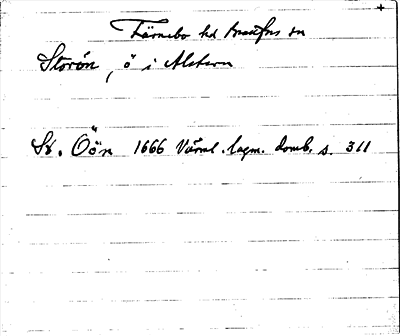 Färnebo hd Brattfors sn
Storön, ö i Alstern
St. Öön 1666 Värml. lagm. domb. s. 311